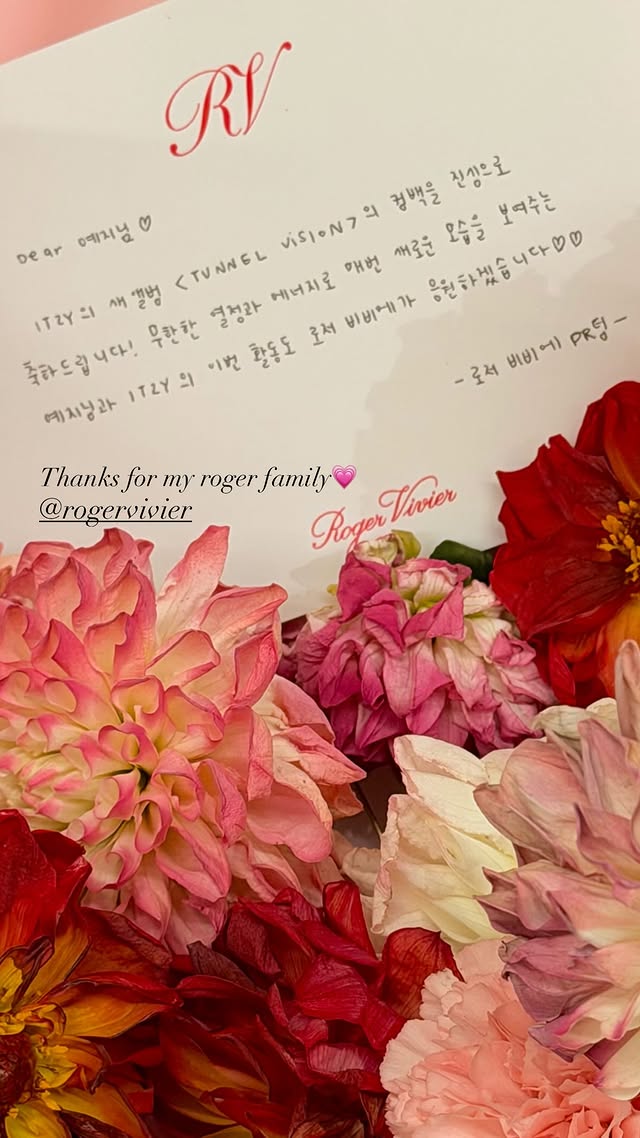 RV
Dear 예지님♡
ITZY의 새 앨범 <TUNNEL VISION>의 컴백을 진심으로
축하드립니다! 무한한 열정과 에너지로 매번 새로운 모습을 보여주는
예지님과 ITZY의 이번 활동도 로저 비비에가 응원하겠습니다♡♡
- 로저 비비에 PR팀 -
Thanks for my roger family💗
@rogervivier
Roger Vivier